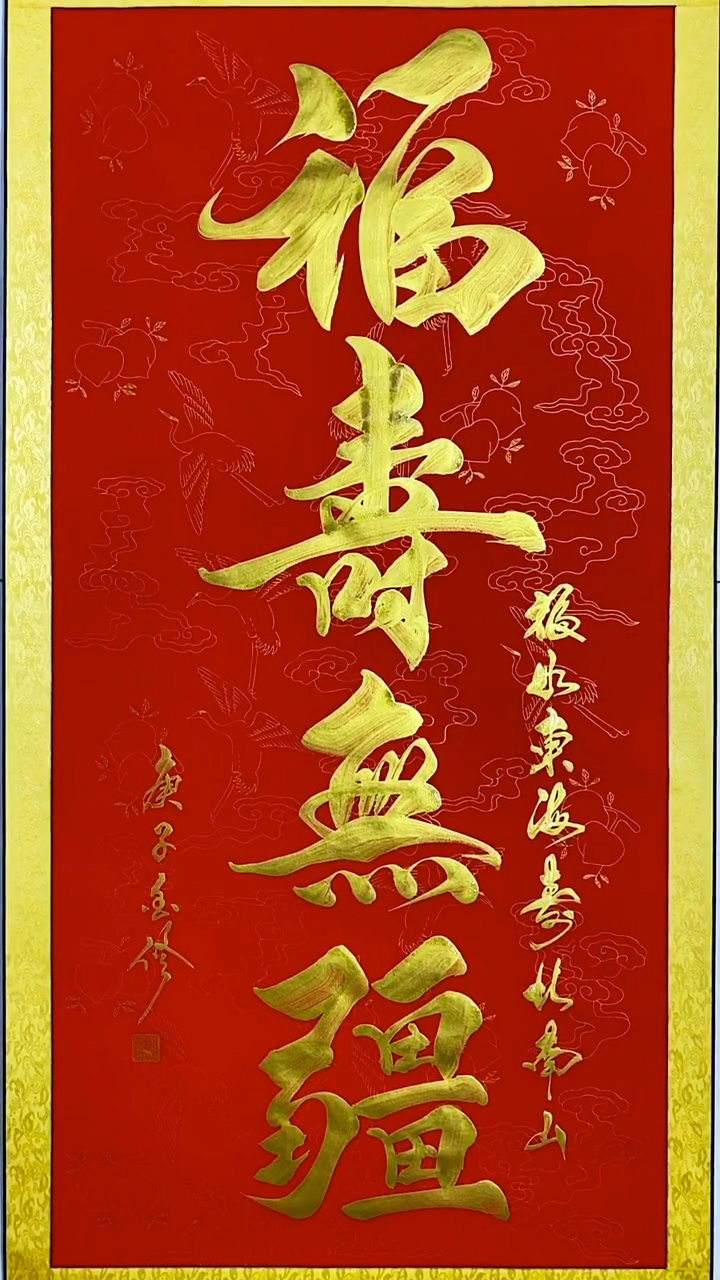 福壽無疆
福如東海壽比南山
庚子